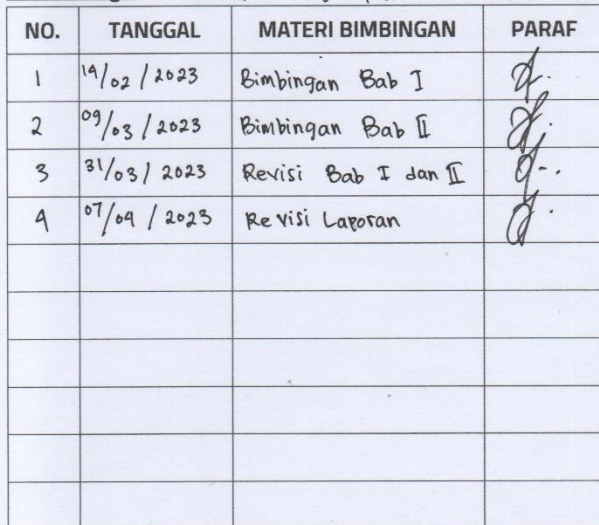 NO. TANGGAL MATERI BIMBINGAN PARAF
1 14/02/2023 Bimbingan Bab I
2 09/03/2023 Bimbingan Bab II
3 31/03/2023 Revisi Bab I dan II
4 07/04/2023 Revisi Laporan